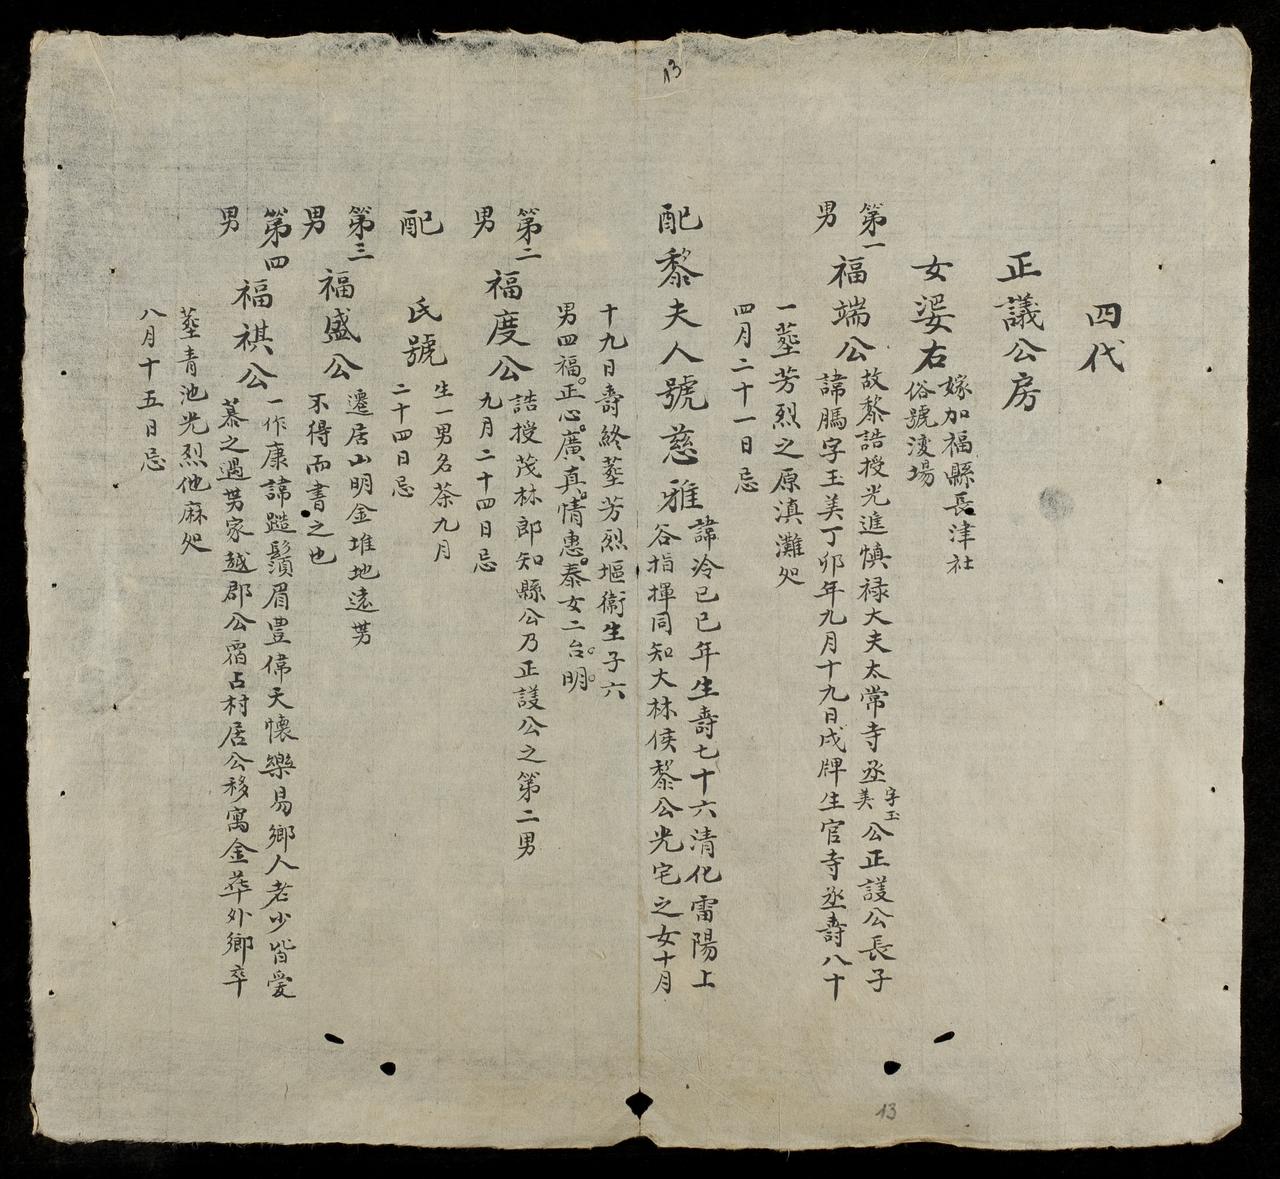 13
四代
正議公房
女㛪右
嫁加福縣長津社
俗號渡場
第一
男
福端公
故黎誥授光進慎祿大夫太常寺丞
字玉
美
公正議公長子
諱腾字玉美丁卯年九月十九日戌牌生官寺丞壽八十
一塟芳烈之原滇灘処
四月二十一日忌
配黎夫人號慈雅
諱冷已巳年生壽七十六清化雷陽上
谷指揮同知大林侯黎公光宅之女十月
十九日壽終塟芳烈塸衛生子六
男四福。正心。廣真。情惠。泰女二台。明。
第二
男
福度公
誥授茂林郎知縣公乃正議公之第二男
九月二十四日忌
配
氏號
生一男名茶九月
二十四日忌
第三
男
福盛公
遷居山明金堆地遠男
不得而書之也
第四
男
福祺公
一作康諱鬚眉豊偉天懷樂易鄉人老少皆愛
慕之遇男家越郡公占村居公移寓金華外鄉卒
塟青池光烈他麻処
八月十五日忌
13